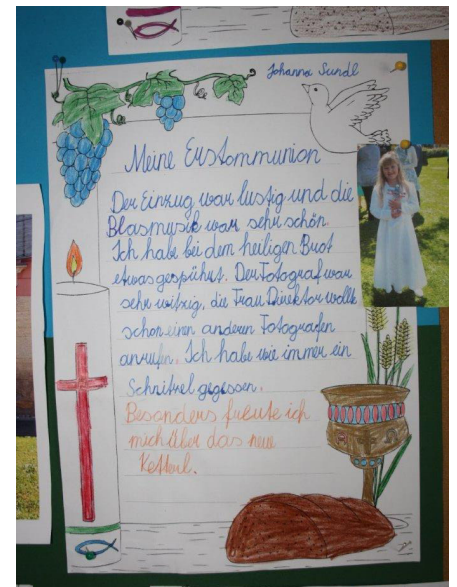 Johanna Sundl
Meine Erstkommunion
Der Einzug war lustig und die
Blasmusik war sehr schön.
Ich habe bei dem heiligen Brot
etwas gespührt. Der Fotograf war
sehr witzig, die Frau Direktor wollte
schon einen anderen Fotografen
anrufen. Ich habe wie immer ein
Schnitzel gegessen.
Besonders freute ich
mich über das neue
Ketterl.